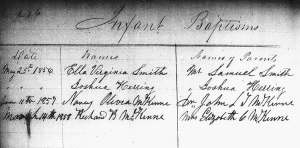 Infant Baptisms
Date Names Names of Parents
May 25th 1854 Ella Virginia Smith Mr Samuel Smith
" " Joshua Herring " Joshua Herring
June 11th 1857 Nancy Olivia McKinne Dr John L T McKinne
March 14th 1858 Richard B McKinne Mrs Elizabeth S McKinne